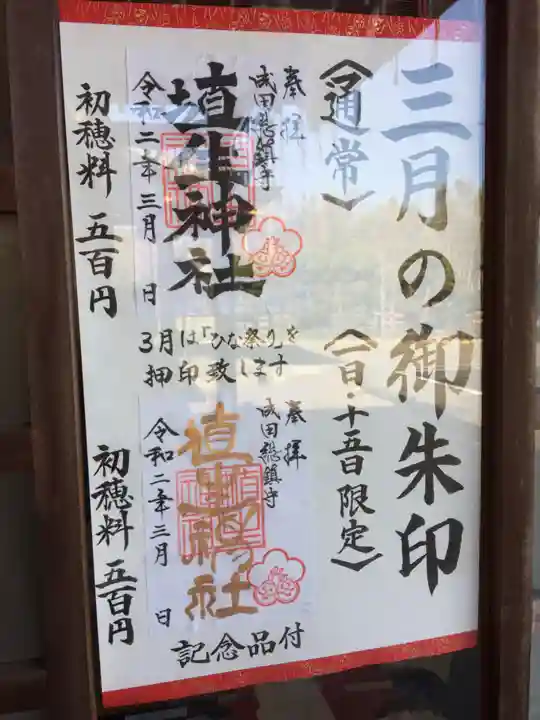 三月の御朱印
〈通常〉
奉拝
成田総鎮守
埴生神社
令和二年三月 日
初穂料 五百円
3月は「ひな祭り」を
押印致します
〈一日・十五日限定〉
奉拝
成田総鎮守
埴生神社
令和二年三月 日
初穂料 五百円
記念品付